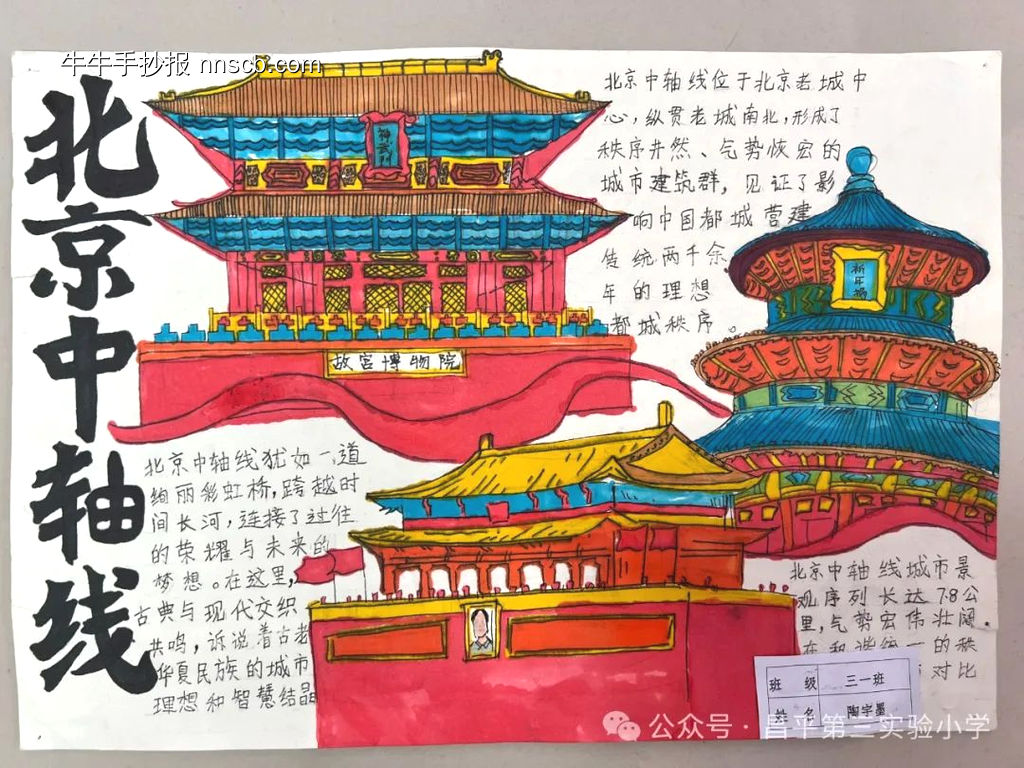 牛牛手抄报 nnscb.com
北京中轴线
北京中轴线位于北京老城中
心,纵贯老城南北,形成了
秩序井然、气势恢宏的
城市建筑群,见证了影
响中国都城营建
传统两千余
年的理想
都城秩序。
神武门
祈年殿
故宫博物院
北京中轴线犹如一道
绚丽彩虹桥,跨越时
间长河,连接了过往
的荣耀与未来的
梦想。在这里,
古典与现代交织
共鸣,诉说着古老
华夏民族的城市
理想和智慧结晶
北京中轴线城市景
观序列长达7.8公
里,气势宏伟壮阔
在和谐统一的秩
对比
班 级 三一班
姓 名 陶宇墨
公众号·昌平第二实验小学